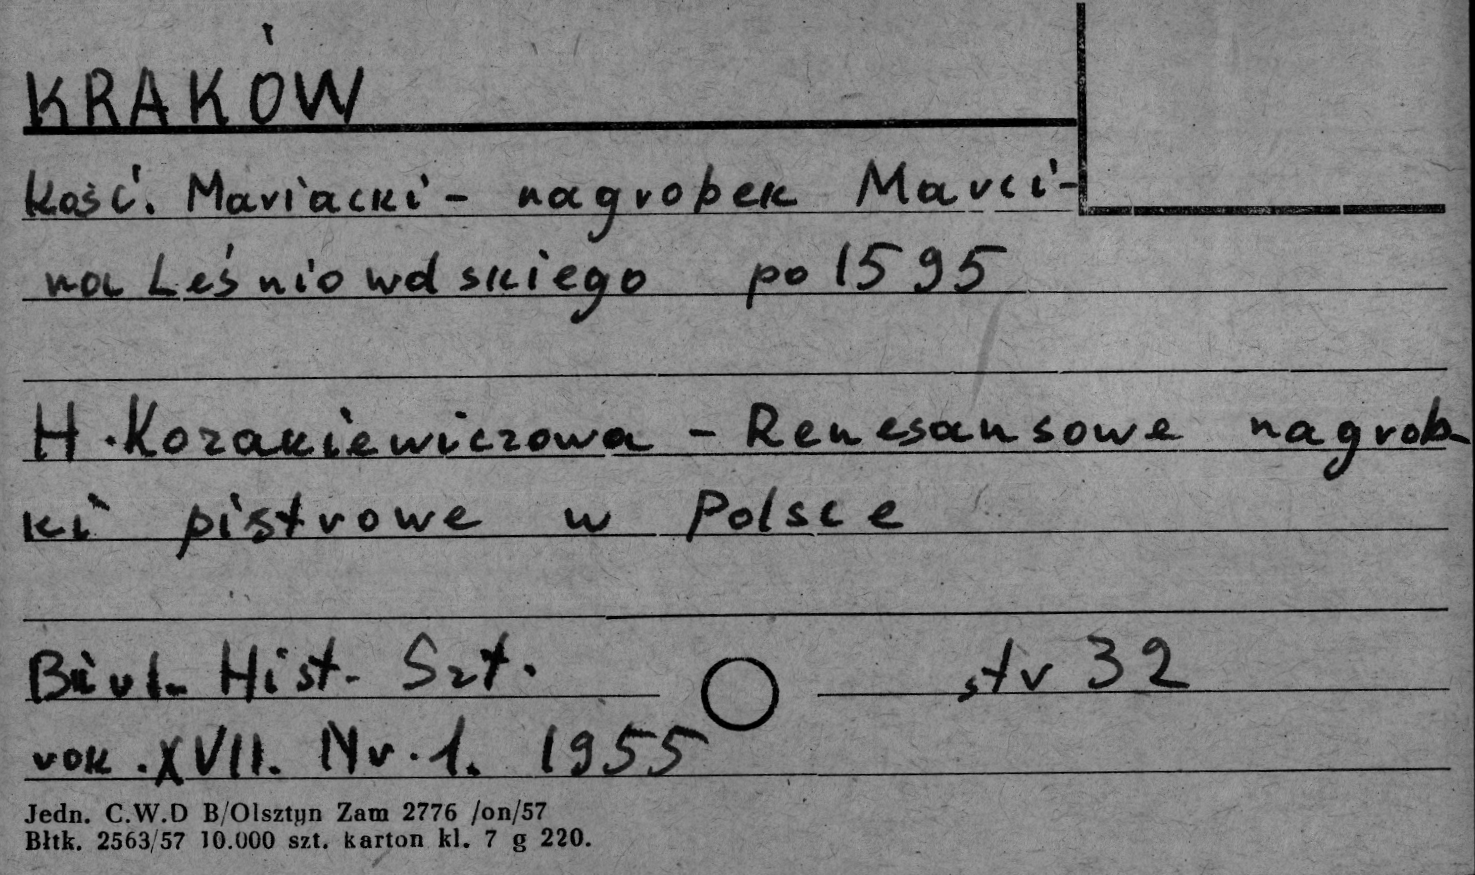 KRAKÓW
Kość. Mariacki - nagrobek Marci-
na Leśniowolskiego po 1595
H. Kozakiewiczowa - Renesansowe nagrob-
ki pistrowe w Polsce
Biul. Hist. Szt. str 32
rok. XVII. Nr. 1. 1955
Jedn. C.W.D B/Olsztyn Zam 2776 /on/57
Błtk. 2563/57 10.000 szt. karton kl. 7 g 220.